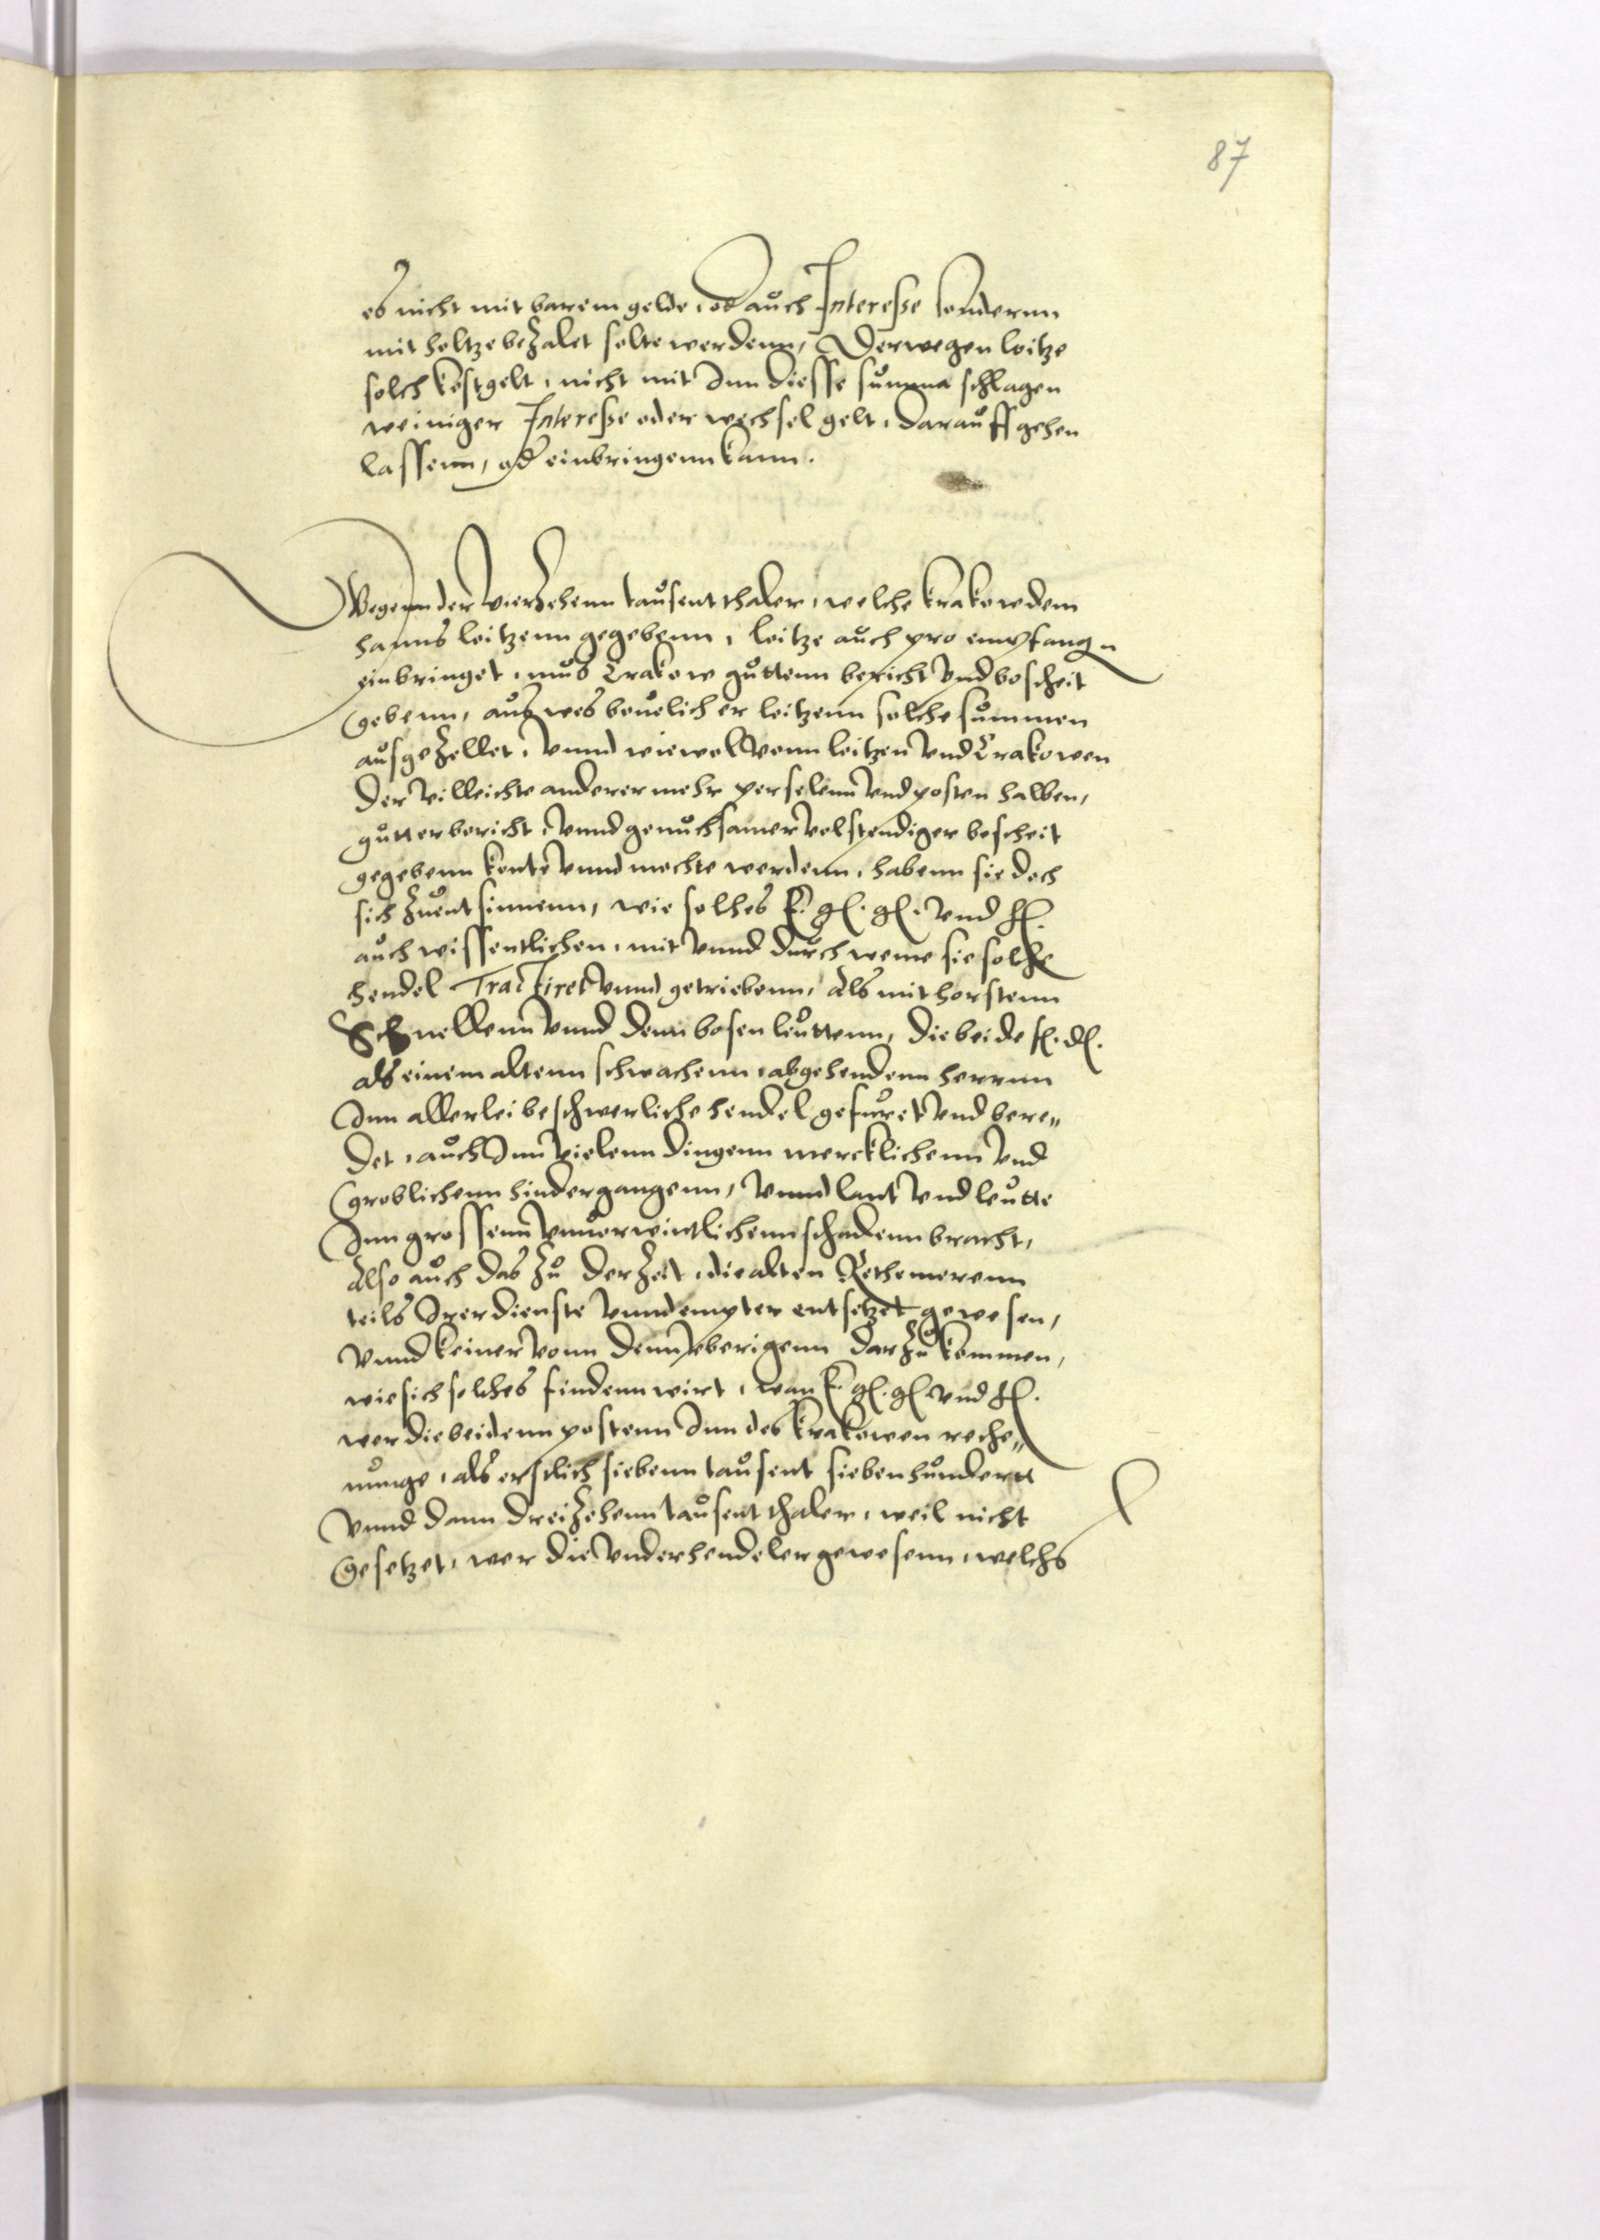 87
es nicht mit barem gelde, od auch Interesse sonderun
mit holtze bezalet solte werdenn, Derwegen loitze
solch kostgelt, nicht mit Inn diesse summa schlagen
weiniger Interesse oder wechsel gelt, darauff gehen
lassenn, od einbringenn kann.
Wegenn der vierzehenn tausent thaler, welche krakow dem
hanns loitzenn gegebenn, loitze auch pro empfangn
einbringet, mus Crakow guttenn bericht vnd bescheit
gebenn, aus wes beuelich er loitzenn solche summen
ausgezellet, vnnd wiewol vonn loitzen vnd Crakowen
der villeichte anderer mehr perselenn vnd posten halben,
gutter bericht, vnnd genuchsamer volstendiger bescheit
gegebenn konte vnnd mochte werdenn, habenn sie doch
sich zuentsinnenn, wie solches E. g. g. vnd f.
auch wissentlichen, mit vnnd durch weme sie solche
hendel Tractiret vnnd getriebenn, Als mit horstenn
Schnellenn vnnd denn bosen leuttenn, die beide f. d.
als einem altenn schwachenn, abgehendenn herrnn
Inn allerlei beschwerliche hendel gefuret vnd bere„
det, auch Inn vielenn dingenn mercklichenn vnd
groblichenn hindergangenn, vnnd lant vnd leutte
Inn grossenn vnuorwintlichenn schadenn bracht,
Also auch das zu der Zeit, die alten Rethe merenn
teils Irer dienste vnnd empter entsetzet gewesen,
vnnd keiner vonn denn vberigenn darzu kommen,
wie sich solches findenn wirt, wan E. g. g. vnd f.
wer die beidenn postenn Inn des krakowen reche„
nunge, als erstlich siebenn tausent sieben hundertt
vnnd dann dreizehenn tausent thaler, weil nicht
gesetzet, wer die vnderhendeler gewesenn, welchs